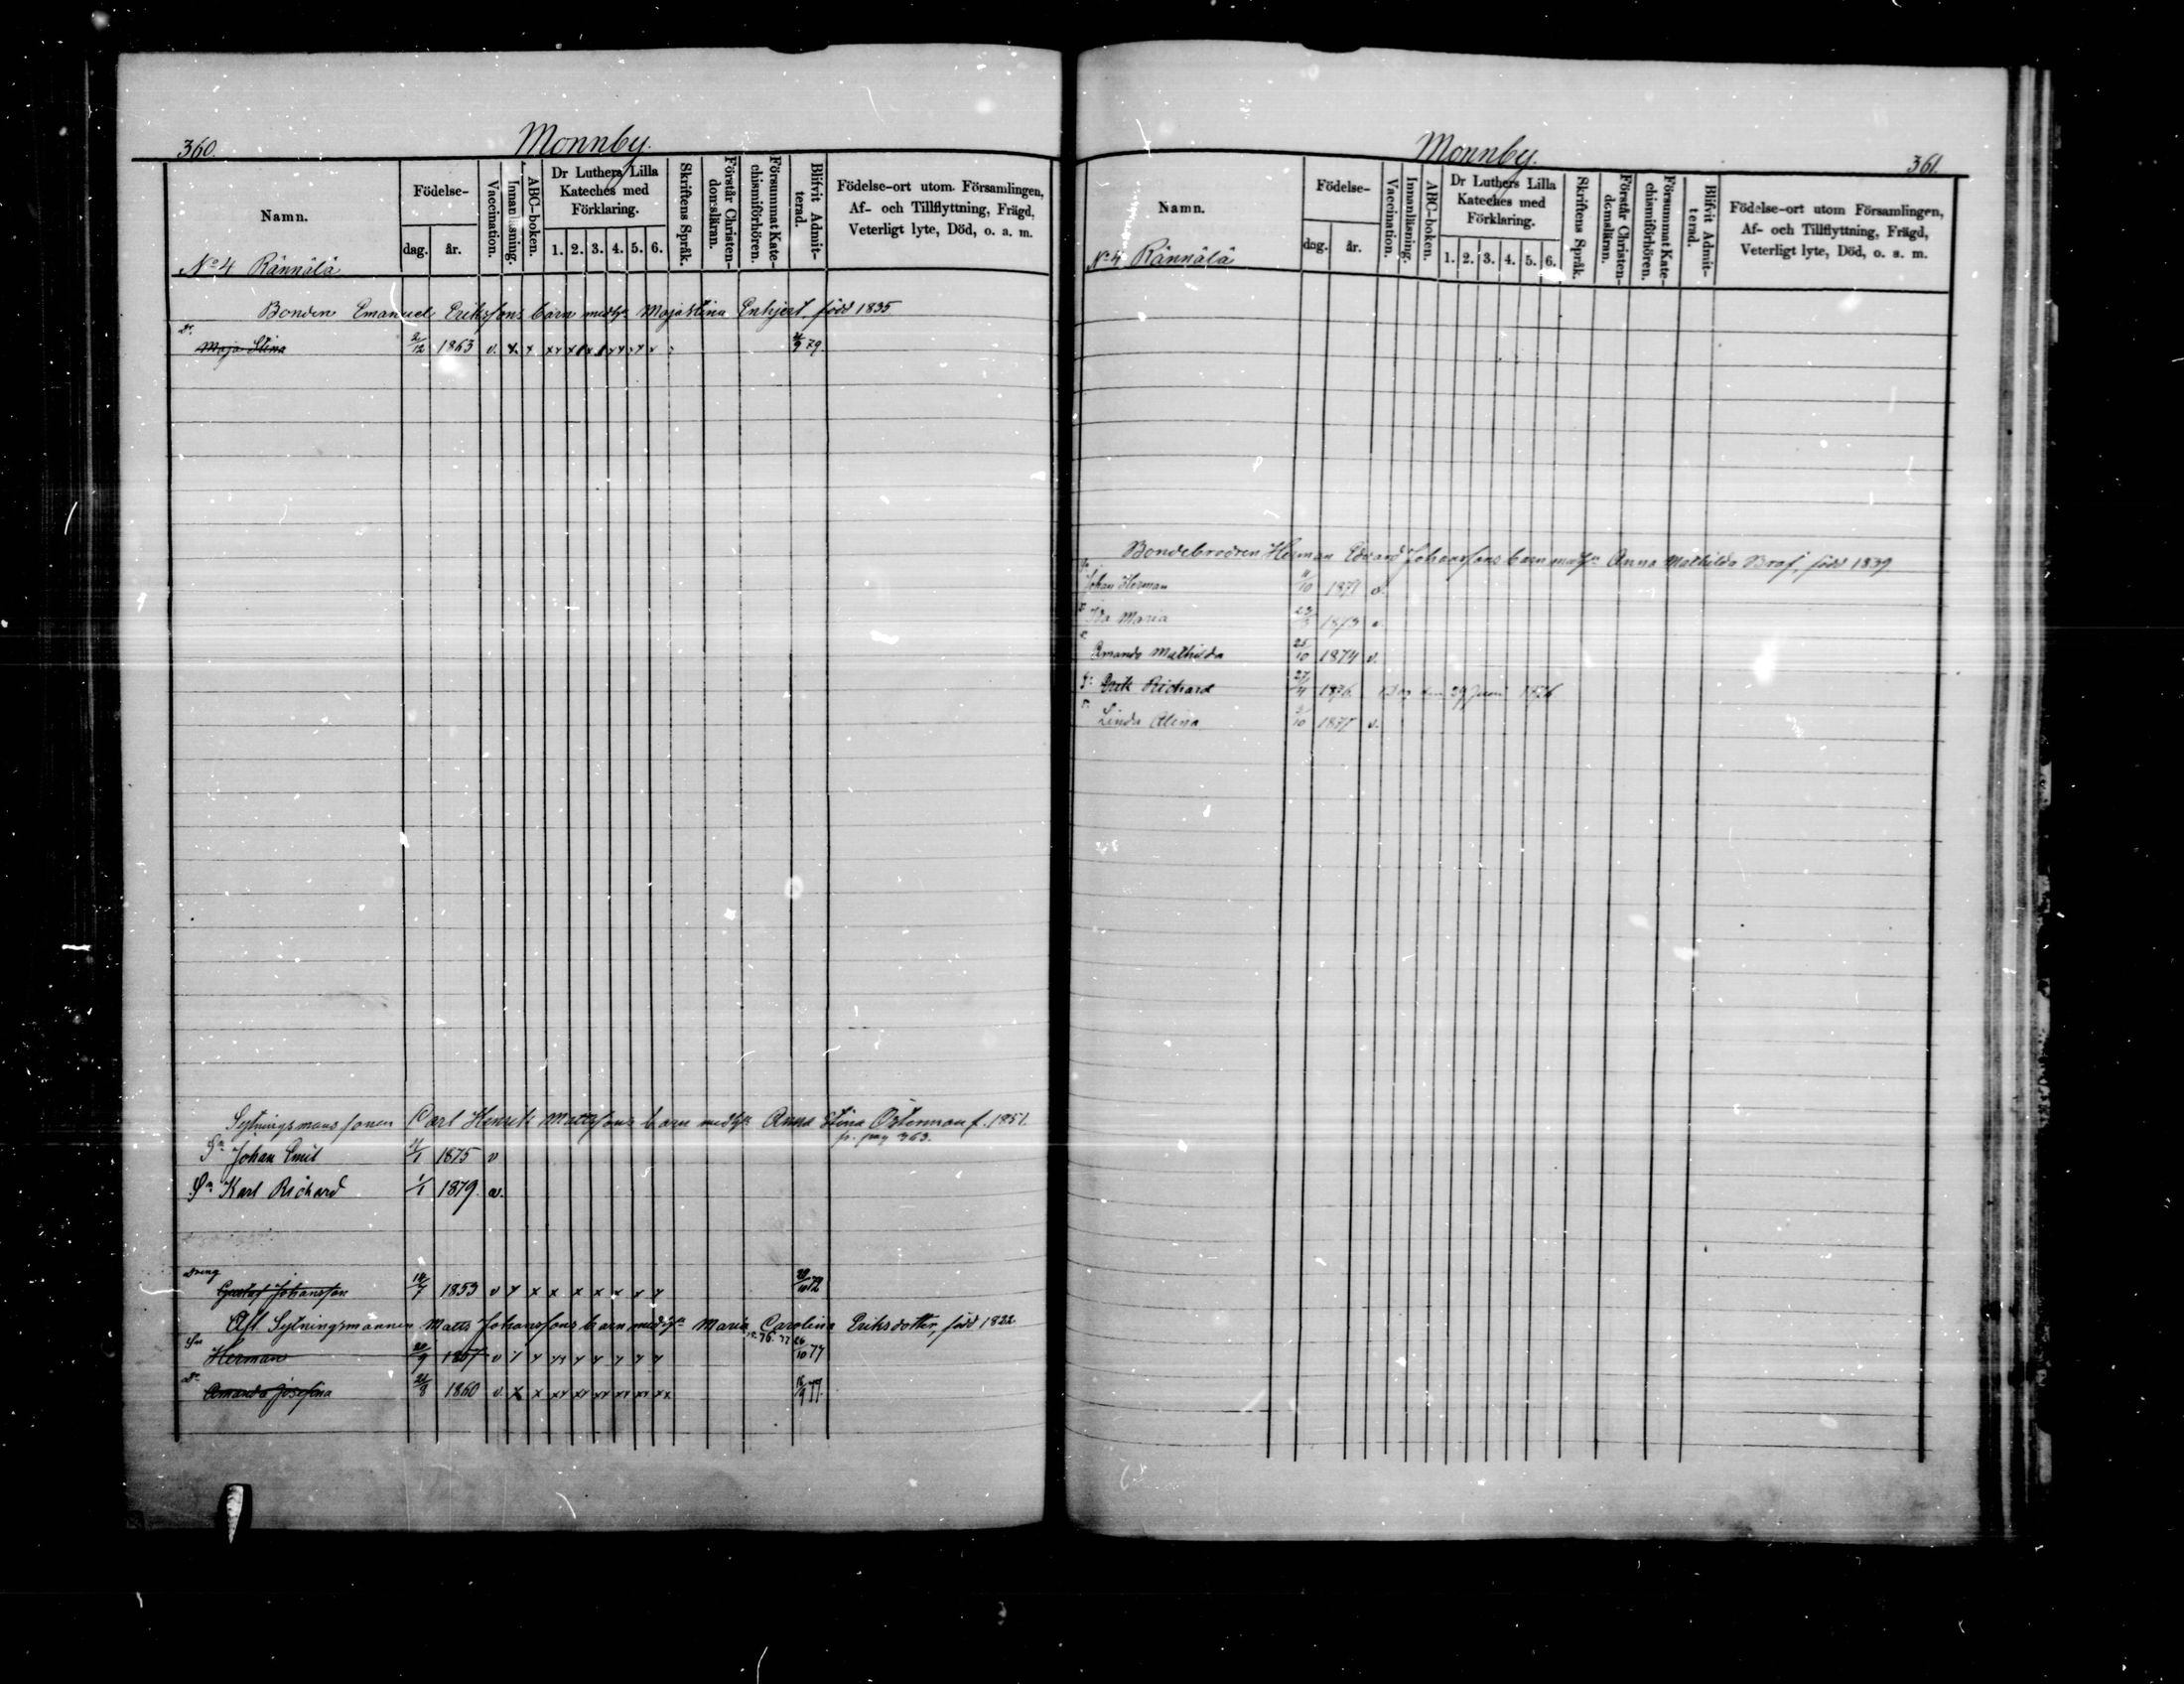 360.
Monnby.
Namn.
Födelse-
dag. år.
Vaccination.
Innanläsning.
ABC-boken.
Dr Luthers Lilla
Kateches med
Förklaring.
1. 2. 3. 4. 5. 6.
Skriftens Språk.
Förstår Christen-
domsläran.
Försummat Kate-
chismiförhören.
Blifvit Admit-
terad.
Födelse-ort utom Församlingen,
Af- och Tillflyttning, Frägd,
Veterligt lyte, Död, o. a. m.
No 4 Rännälä
Bonden Emanuel Erikssons barn med h. Maja Stina Enhjert född 1835
Dr. Maja Stina 2/12 1863 v. 79.
Sytningsmanssonen Carl Henrik Mattssons barn med h. Anna Stina Österman f. 1851.
fr. pag 363.
Sn Johan Emil 1875 v
Sn Karl Richard 1/1 1879 v.
Dräng
Gustaf Johansson 1853 v x x x x x x x x 72
Afl. Sytningsmannen Matts Johanssons barn med h. Maria Carolina Eriksdotter, född 1822
76. 77
Sn Herman 20/9 1857 v 26/10 77
Dr. Amanda Josefina 21/8 1860 v. x x xx xx xx xx xx xx 77.
Monnby.
361.
Namn.
Födelse-
dag. år.
Vaccination.
Innanläsning.
ABC-boken.
Dr Luthers Lilla
Kateches med
Förklaring.
1. 2. 3. 4. 5. 6.
Skriftens Språk.
Förstår Christen-
domsläran.
Försummat Kate-
chismiförhören.
Blifvit Admit-
terad.
Födelse-ort utom Församlingen,
Af- och Tillflyttning, Frägd,
Veterligt lyte, Död, o. a. m.
No 4 Rännälä
Bondebrodren Herman Edvard Johanssons barn med h. Anna Mathilda Brof, född 1839
Johan Herman 1871 v.
Ida Maria 1873 v.
Amanda Mathilda 25/10 1874 v.
Erik Richard 27/4 1876. Dog den 29 Juni 1876
Linda Alina 1877 v.